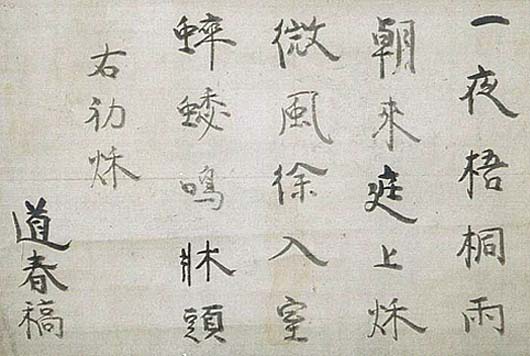 一夜梧桐雨
朝来庭上秌
微風徐入室
鳴牀頭
右初秌
道春稿